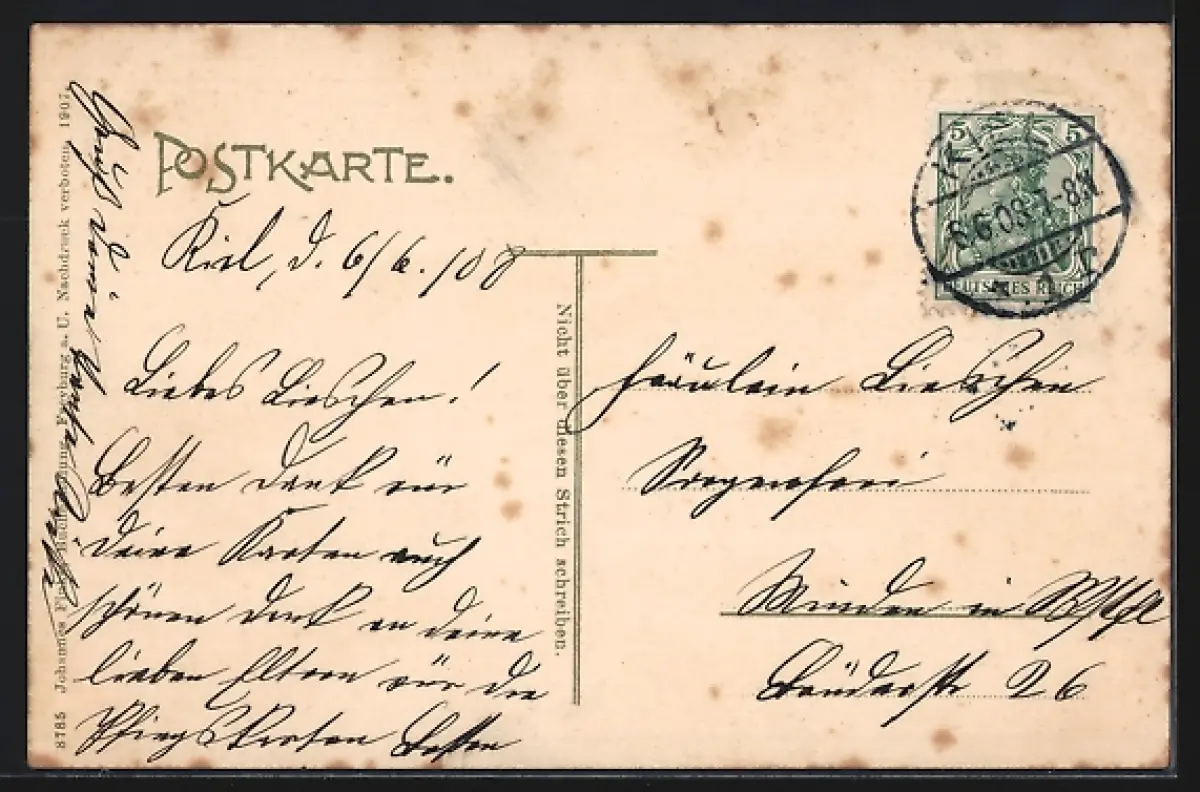 POSTKARTE.
Kiel, d. 6/6. 08
Liebes Lieschen!
Besten Dank für
deine Karten auch
schönen Dank an deine
lieben Eltern für die
Pfingstkarten Besten
Gruß von
Nicht über diesen Strich schreiben.
5 5
DEUTSCHES REICH
KIEL
6.6.08. 7-8N
Fräulein Lieschen
Sorgenfrei
Minden in Wstfl
Brüderstr 26
8785 Johannes Buchhandlung, Freyburg a. U. Nachdruck verboten. 1907.